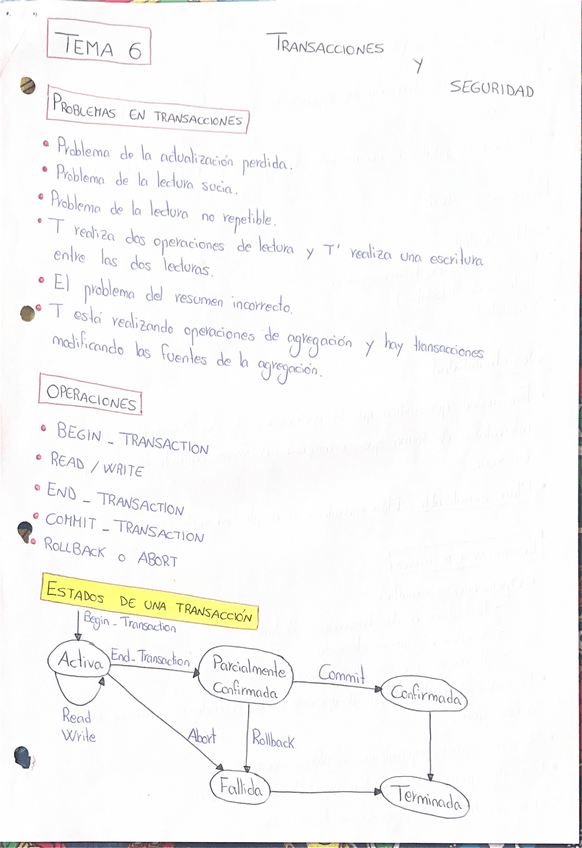 TEMA 6
TRANSACCIONES
Y
SEGURIDAD
PROBLEMAS EN TRANSACCIONES
• Problema de la actualización perdida.
• Problema de la lectura sucia.
• Problema de la lectura no repetible.
• T realiza dos operaciones de lectura y T' realiza una escritura
entre las dos lecturas.
• El problema del resumen incorrecto.
• T está realizando operaciones de agregación y hay transacciones
modificando las fuentes de la agregación.
OPERACIONES
• BEGIN _ TRANSACTION
• READ / WRITE
• END _ TRANSACTION
• COMMIT _ TRANSACTION
• ROLLBACK o ABORT
ESTADOS DE UNA TRANSACCIÓN
Begin _ Transaction
Activa
End _ Transaction
Parcialmente
Confirmada
Commit
Confirmada
Read
Write
Abort
Rollback
Fallida
Terminada